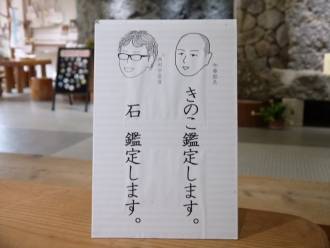 きのこ鑑定します。
石　鑑定します。